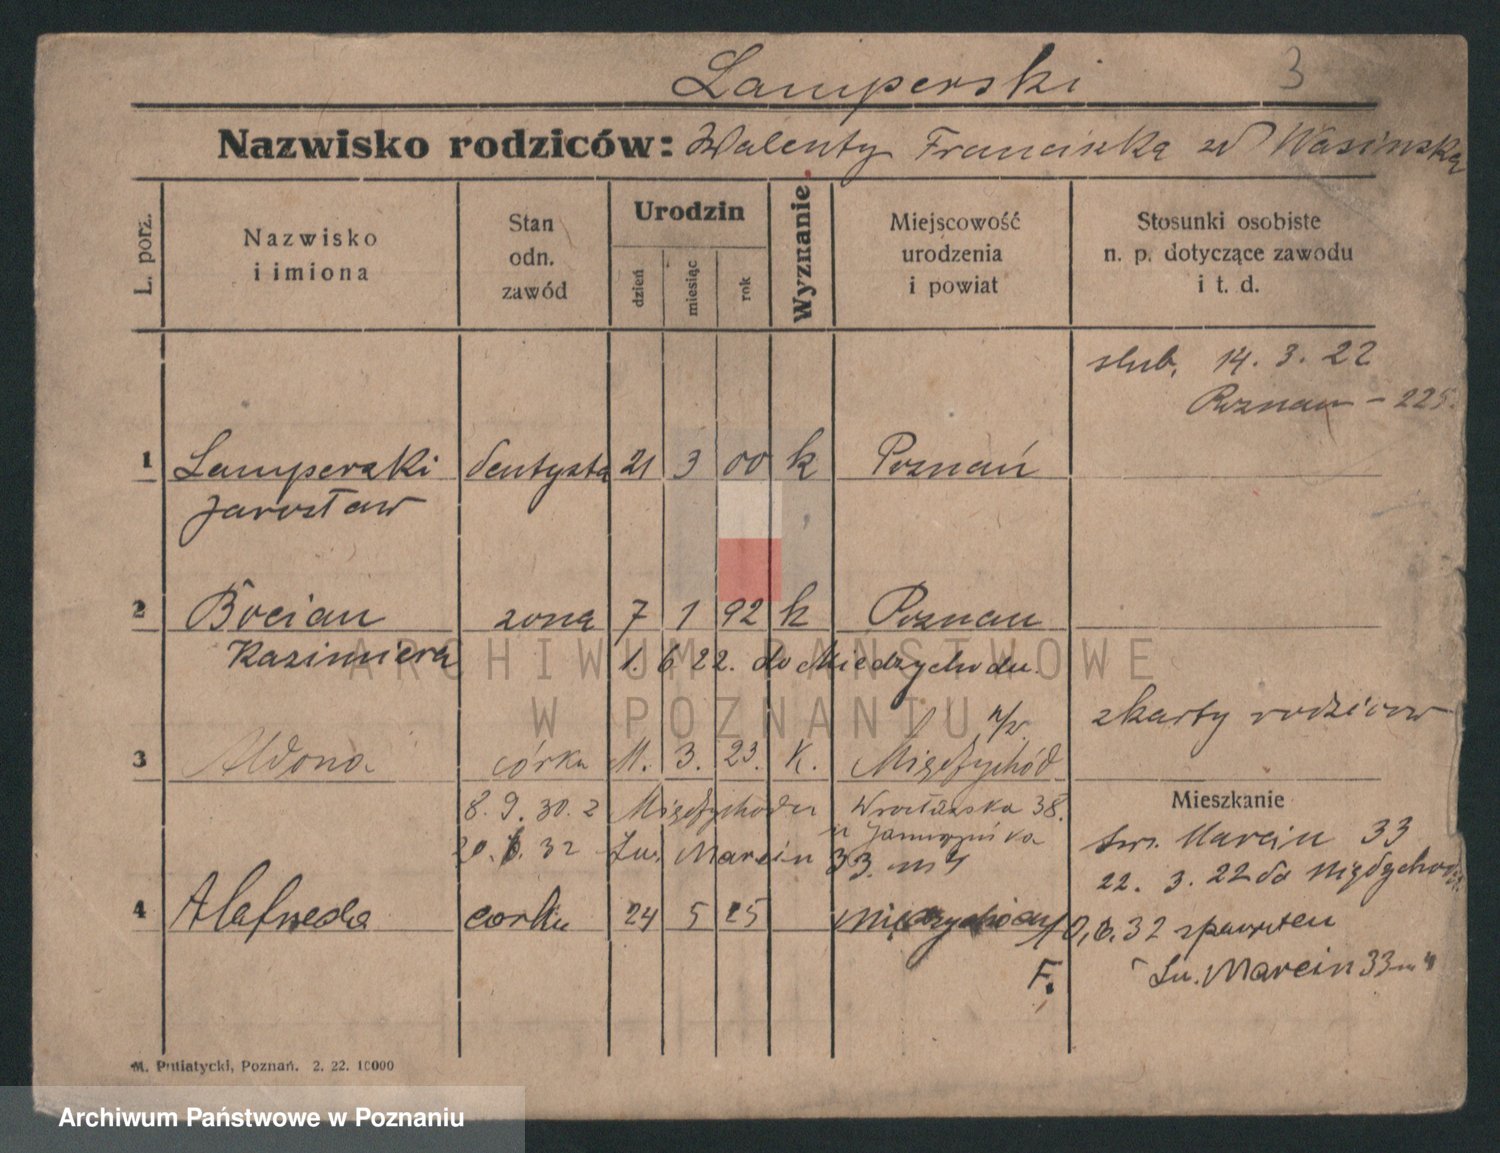 3
Lamperski
Nazwisko rodziców: Walenty Franciszka zd Wasinska
L. porz.
Nazwisko i imiona
Stan odn. zawód
Urodzin
dzień
miesiąc
rok
Wyznanie
Miejscowość urodzenia i powiat
Stosunki osobiste n. p. dotyczące zawodu i t. d.
slub. 14. 3. 22
Poznan - 225.
1 Lamperski dentysta 21 3 00 k Poznań
Jarosław
2 Bocian zona 7 1 92 k Poznan
Kazimiera 1. 6 22. do Miedzychodu.
ARCHIWUM PAŃSTWOWE
W POZNANIU
zkarty rodzicow
3 Aldona córka 11. 3. 23. K. Międzychód
Mieszkanie
8. 9. 30. z Międzychodu Wrocławska 38.
św. Marcin 33
20. 6. 32 Św. Marcin 33. m 4
22. 3. 22 do Międzychodu
4 corka 24 5 25 Miedzychod
10, 6. 32 zpowrotem
F. Św. Marcin 33 m 4
M. Putiatycki, Poznań. 2. 22. 10000
Archiwum Państwowe w Poznaniu